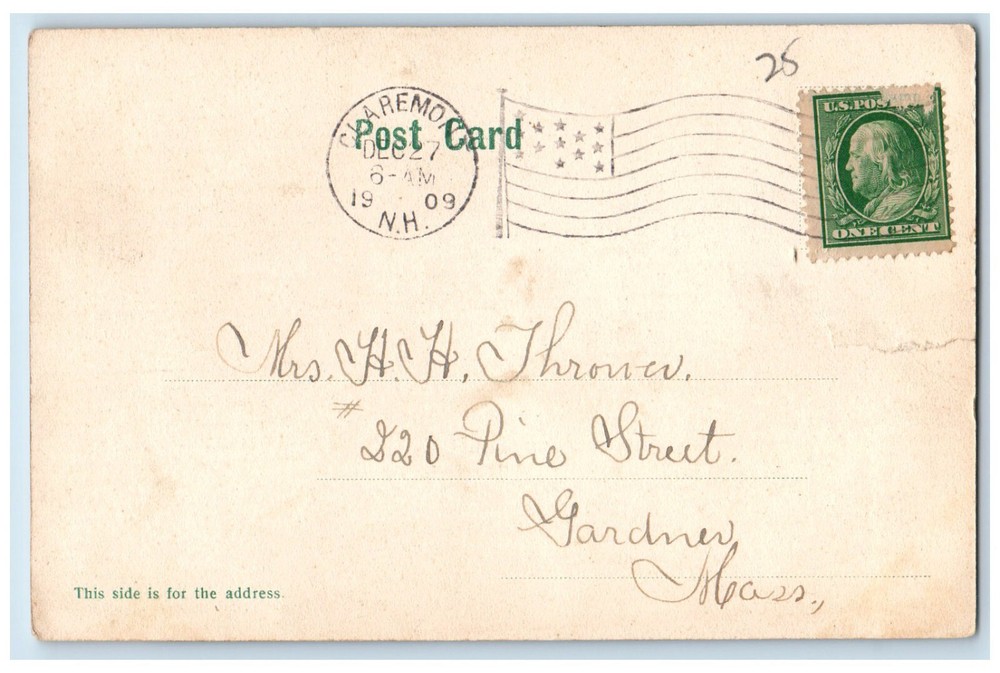 25
CLAREMONT
Post Card
DEC 27
6-AM
19 09
N.H.
U.S. POS
ONE CENT
Mrs. H. H. Thrower.
# 220 Pine Street.
Gardner
Mass.,
This side is for the address.